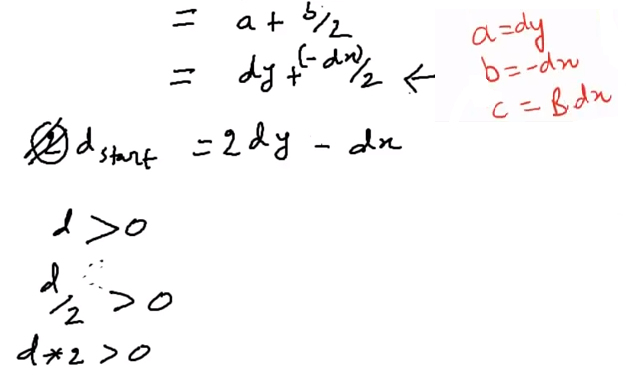 = a + b/2
= dy + (-dx)/2 ←
a = dy
b = -dx
c = B.dx
2 d start = 2dy - dx
d > 0
d/2 > 0
d*2 > 0